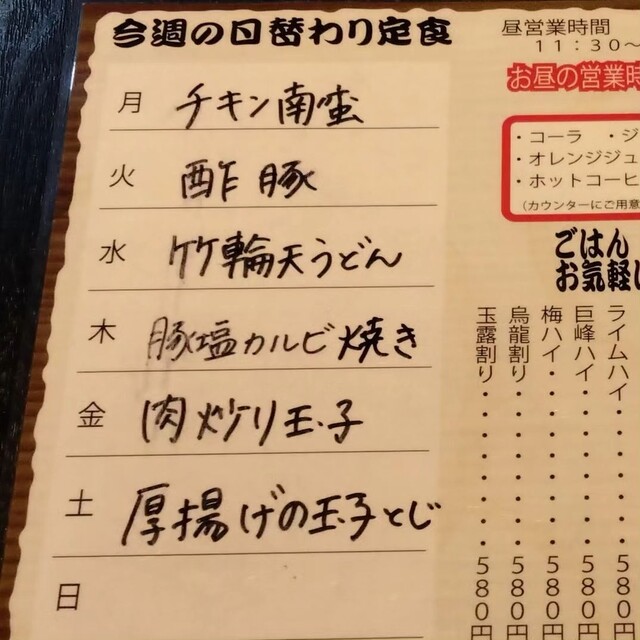 今週の日替わり定食
月 チキン南蛮
火 酢豚
水 竹輪天うどん
木 豚塩カルビ焼き
金 肉炒り玉子
土 厚揚げの玉子とじ
日
昼営業時間
11:30～
お昼の営業時
・コーラ ・ジ
・オレンジジュ
・ホットコーヒ
(カウンターにご用意
ごはん
お気軽し
ライムハイ・・・・・580円
巨峰ハイ・・・・・・580円
梅ハイ・・・・・・・580円
烏龍割り・・・・・・580円
玉露割り・・・・・・580円